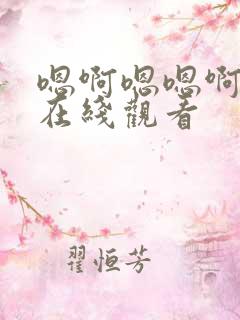 嗯啊嗯嗯啊
在綫觀看
翟恒芳